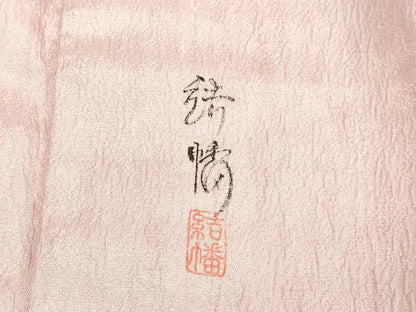 結幡
結幡